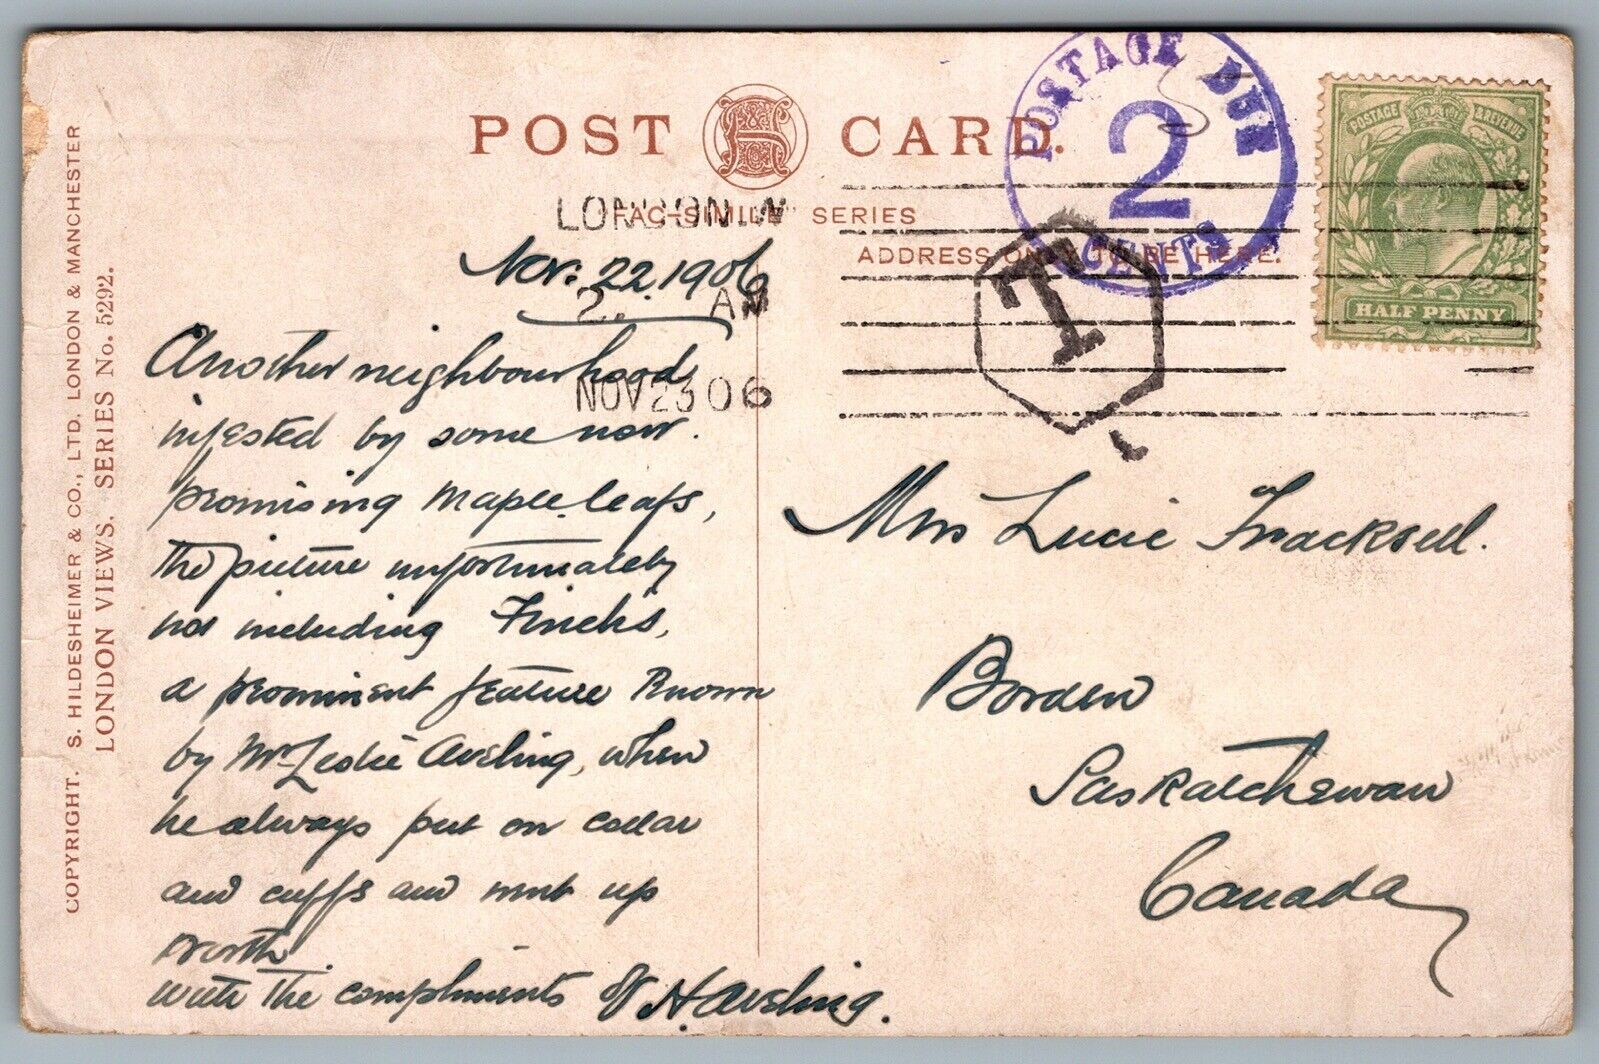 POST CARD.
"FAC-SIMILE" SERIES
ADDRESS ONLY TO BE HERE.
LONDON.W
2. AM
NOV 23 06
POSTAGE DUE
2
CENTS
T
POSTAGE & REVENUE
HALF PENNY
COPYRIGHT. S. HILDESHEIMER & CO., LTD. LONDON & MANCHESTER
LONDON VIEWS. SERIES No. 5292.
Nov: 22. 1906
Another neighbourhood
infested by some now.
promising Maple leafs,
the picture unfortunately
not including Finchs,
a prominent feature known
by Mr Leslie Aveling, when
he always put on collar
and cuffs and went up
North
with the compliments of H. Aveling.
Mrs Lucie Tracksell.
Borden
Saskatchewan
Canada